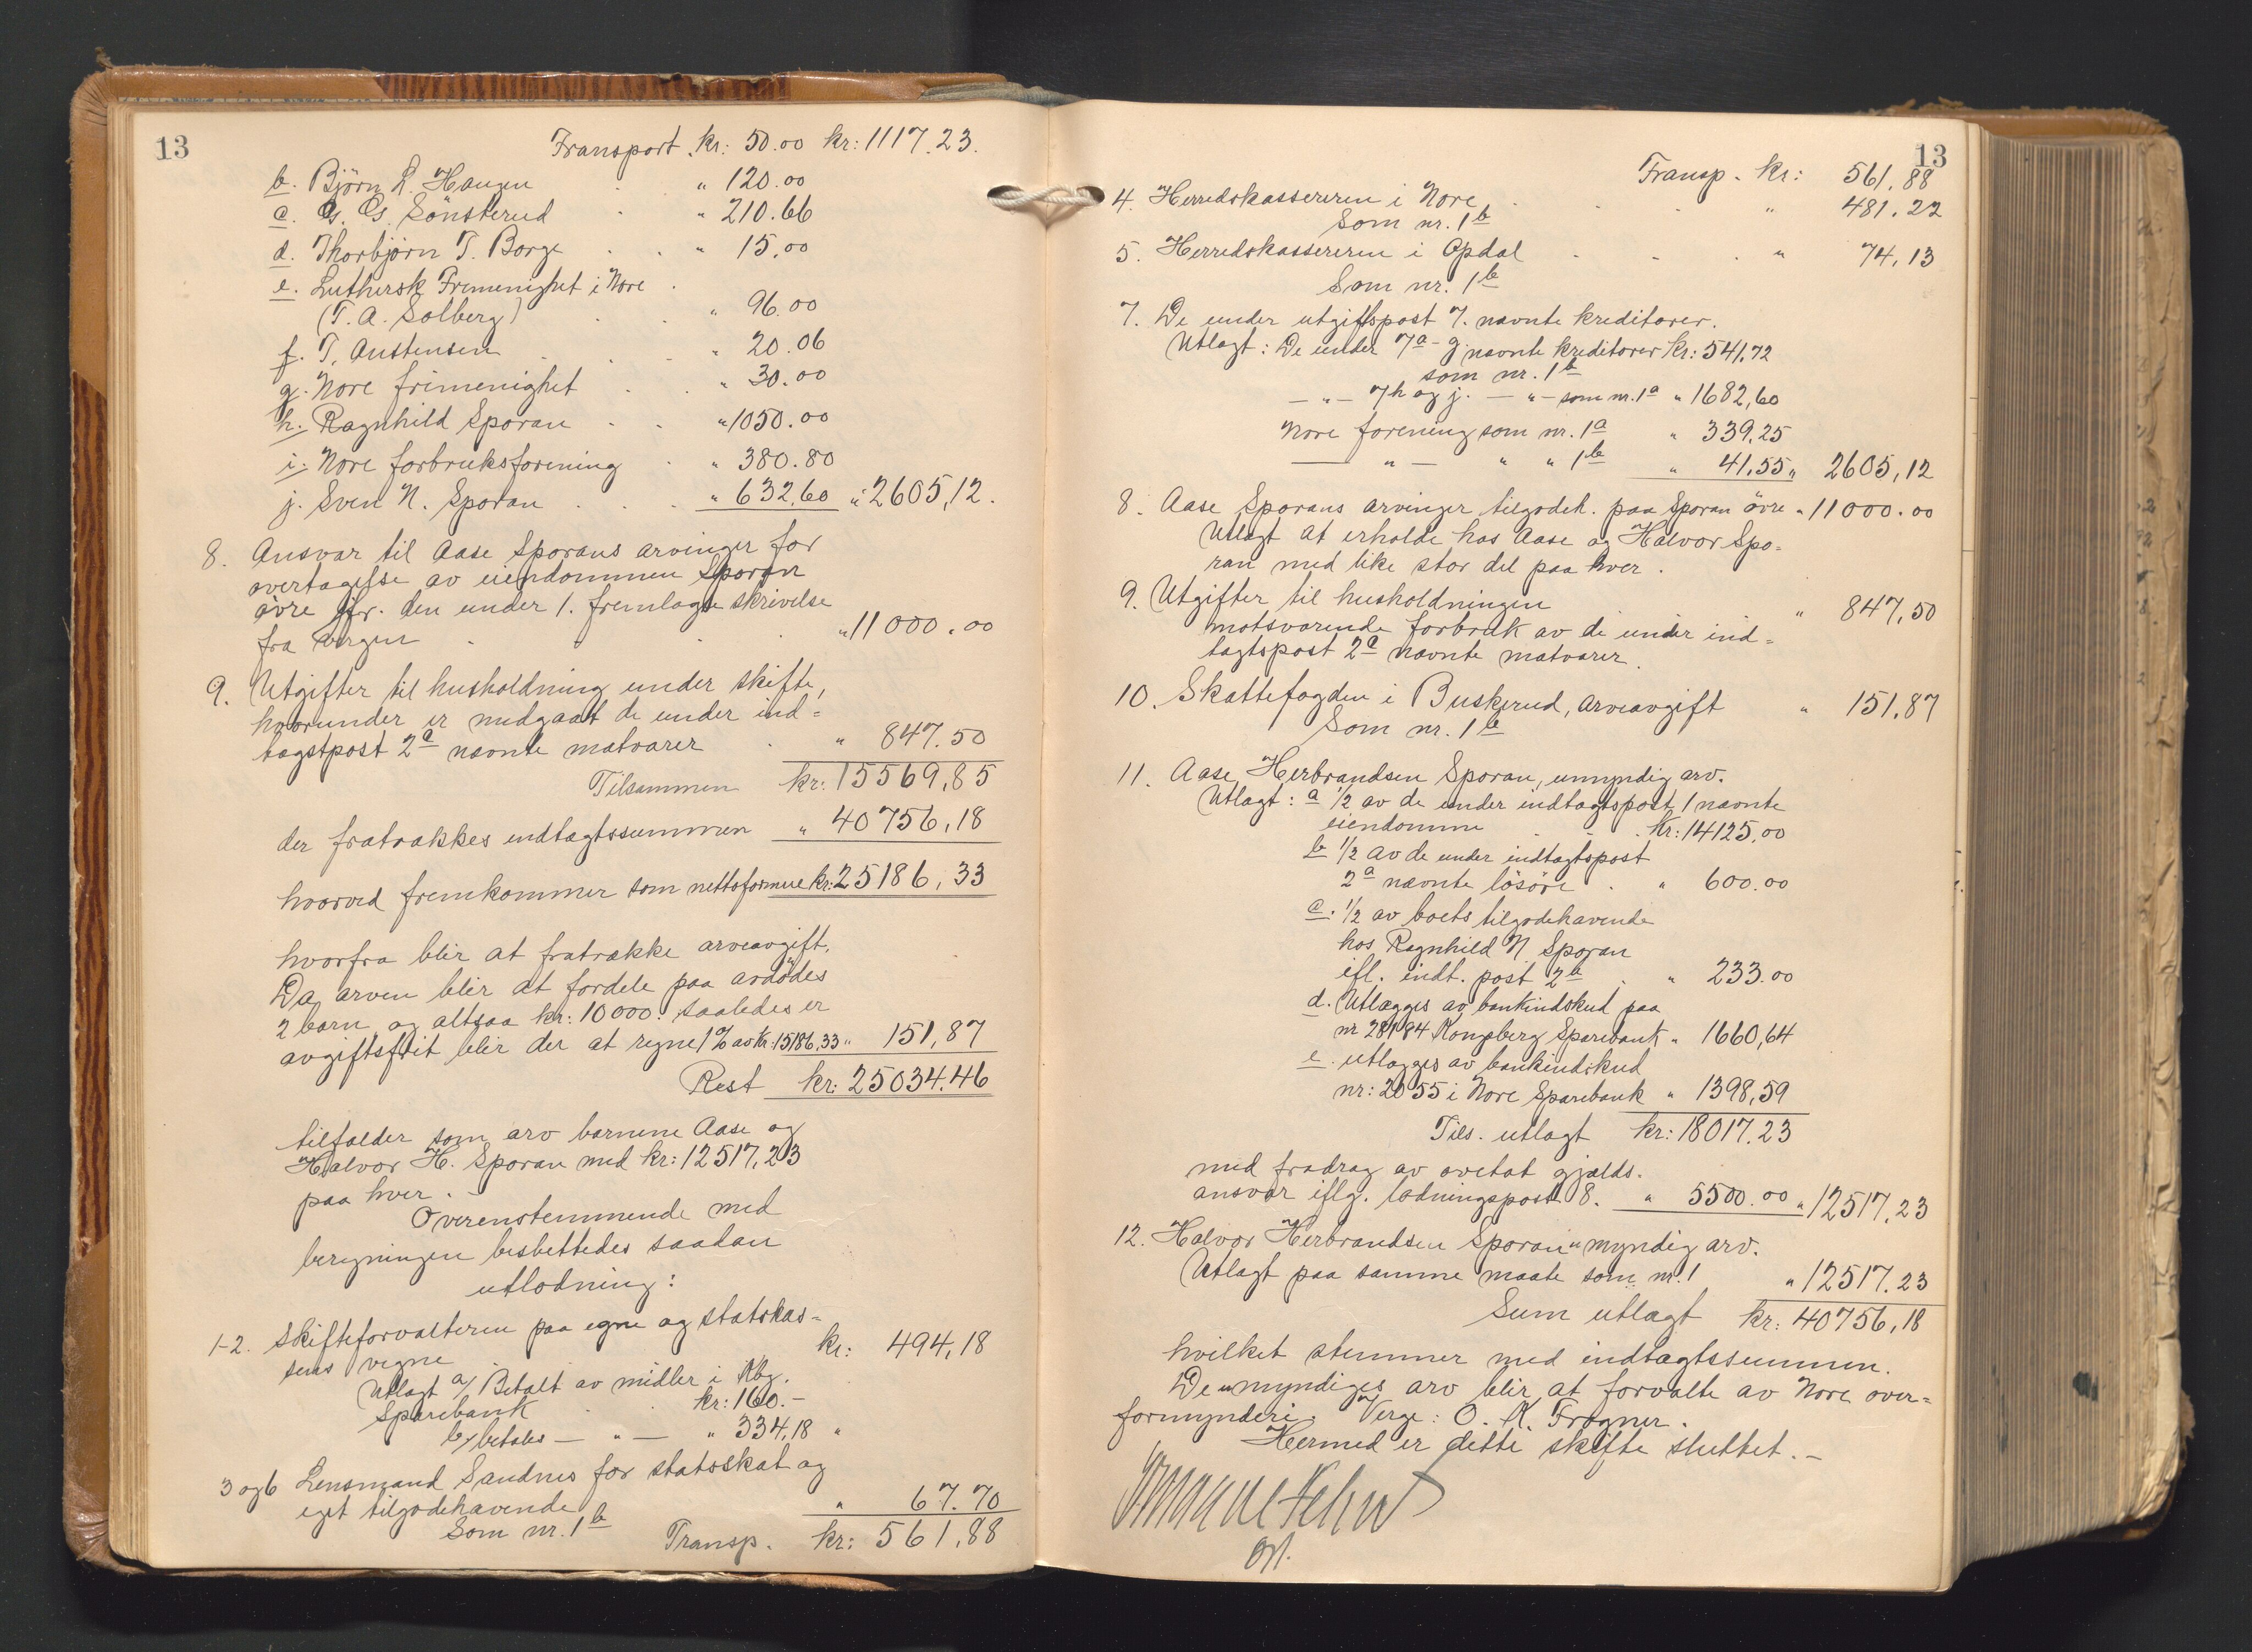 13
Transport kr: 50.00 kr: 1117.23.
b. Björn L. Haugen " 120.00
c. G. G. Sönsterud " 210.66
d. Thorbjörn T. Borge " 15.00
e. Luthersk Frimenighet i Nore
(T. A. Solberg) " 96.00
f. T. Austensen " 20.06
g. Nore frimenighet " 30.00
h. Ragnhild Sporan " 1050.00
i. Nore forbruksforening " 380.80
j. Sven N. Sporan " 632,60 " 2605,12.
8. Ansvar til Aase Sporans arvinger for
overtagelse av eiendommen Sporan
övre jfr. den under 1. fremlagte skrivelse
fra vergen " 11000.00
9. Utgifter til husholdning under skifte,
hvorunder er medgaat de under ind=
tægtspost 2a nævnte matvarer " 847.50
Tilsammen kr: 15569,85
der fratrækkes indtægtssummen " 40756,18
hvorved fremkommer som nettoformue kr: 25186,33
hvorfra blir at fratrække arveavgift.
Da arven blir at fordele paa avdödes
2 barn og altsaa kr: 10000. saaledes er
avgiftsfrit blir der at regne 1% av kr: 15186,33 " 151,87
Rest kr: 25034.46
tilfalder som arv barnene Aase og
Halvor H. Sporan med kr: 12517,23
paa hver.
Overenstemmende med
beregningen besluttedes saadan
utlodning:
1-2. Skifteforvalteren paa egne og statskas=
sens vegne kr: 494,18
Utlagt a/ Betalt av midler i Kbg.
Sparebank kr: 160.-
b/ betales — " — " 334,18 "
3 og 6 Lensmand Sandnes for statsskat og
eget tilgodehavende " 67.70
Som nr. 1b
Transp. kr: 561,88
13
Transp. kr: 561,88
4. Herredskassereren i Nore " 481.22
Som nr. 1b
5. Herredskassereren i Opdal " 74,13
Som nr. 1b
7. De under utgiftspost 7. nævnte kreditorer.
Utlagt: De under 7a-g nævnte kreditorer kr: 541,72
som nr. 1b
— " — 7h og j. — " — som nr. 1a " 1682,60
Nore forening som nr. 1a " 339,25
— " — " " 1b " 41,55 " 2605,12
8. Aase Sporans arvinger tilgodeh. paa Sporan övre " 11000.00
Utlagt at erholde hos Aase og Halvor Spo=
ran med like stor del paa hver.
9. Utgifter til husholdningen " 847,50
motsvarende forbruk av de under ind=
tægtspost 2a nævnte matvarer.
10. Skattefogden i Buskerud, arveavgift " 151,87
Som nr. 1b
11. Aase Herbrandsen Sporan, umyndig arv.
Utlagt: a 1/2 av de under indtægtspost 1 nævnte
eiendomme kr: 14125,00
b 1/2 av de under indtægtspost
2a nævnte lösöre " 600.00
c. 1/2 av boets tilgodehavende
hos Ragnhild N. Sporan
ifl. indt. post 2b " 233.00
d. Utlægges av bankindskud paa
nr 28184 Kongsberg Sparebank " 1660,64
e. utlægges av bankindskud
nr: 2055 i Nore Sparebank " 1398,59
Tils. utlagt kr: 18017.23
med fradrag av overtat gjælds.
ansvar iflg. lodningspost 8. " 5500.00 " 12517,23
12. Halvor Herbrandsen Sporan umyndig arv.
Utlagt paa samme maate som nr. 1 " 12517.23
Sum utlagt kr: 40756,18
hvilket stemmer med indtægtssummen.
De umyndiges arv blir at forvalte av Nore over=
formynderi. Verge: O. K. Frogner.
Hermed er dette skifte sluttet.—